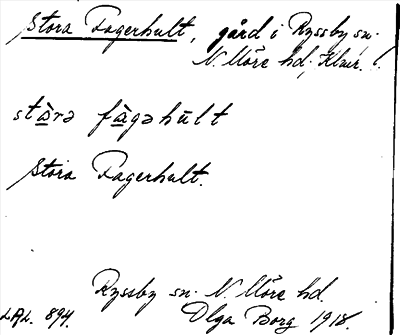 Stora Fagerhult, gård i Ryssby sn.
N. Möre hd, Klmr.
stàrə fàgəhūlt
Stora Fagerhult.
Ryssby sn. N. Möre hd.
LAL. 894. Olga Borg 1918.